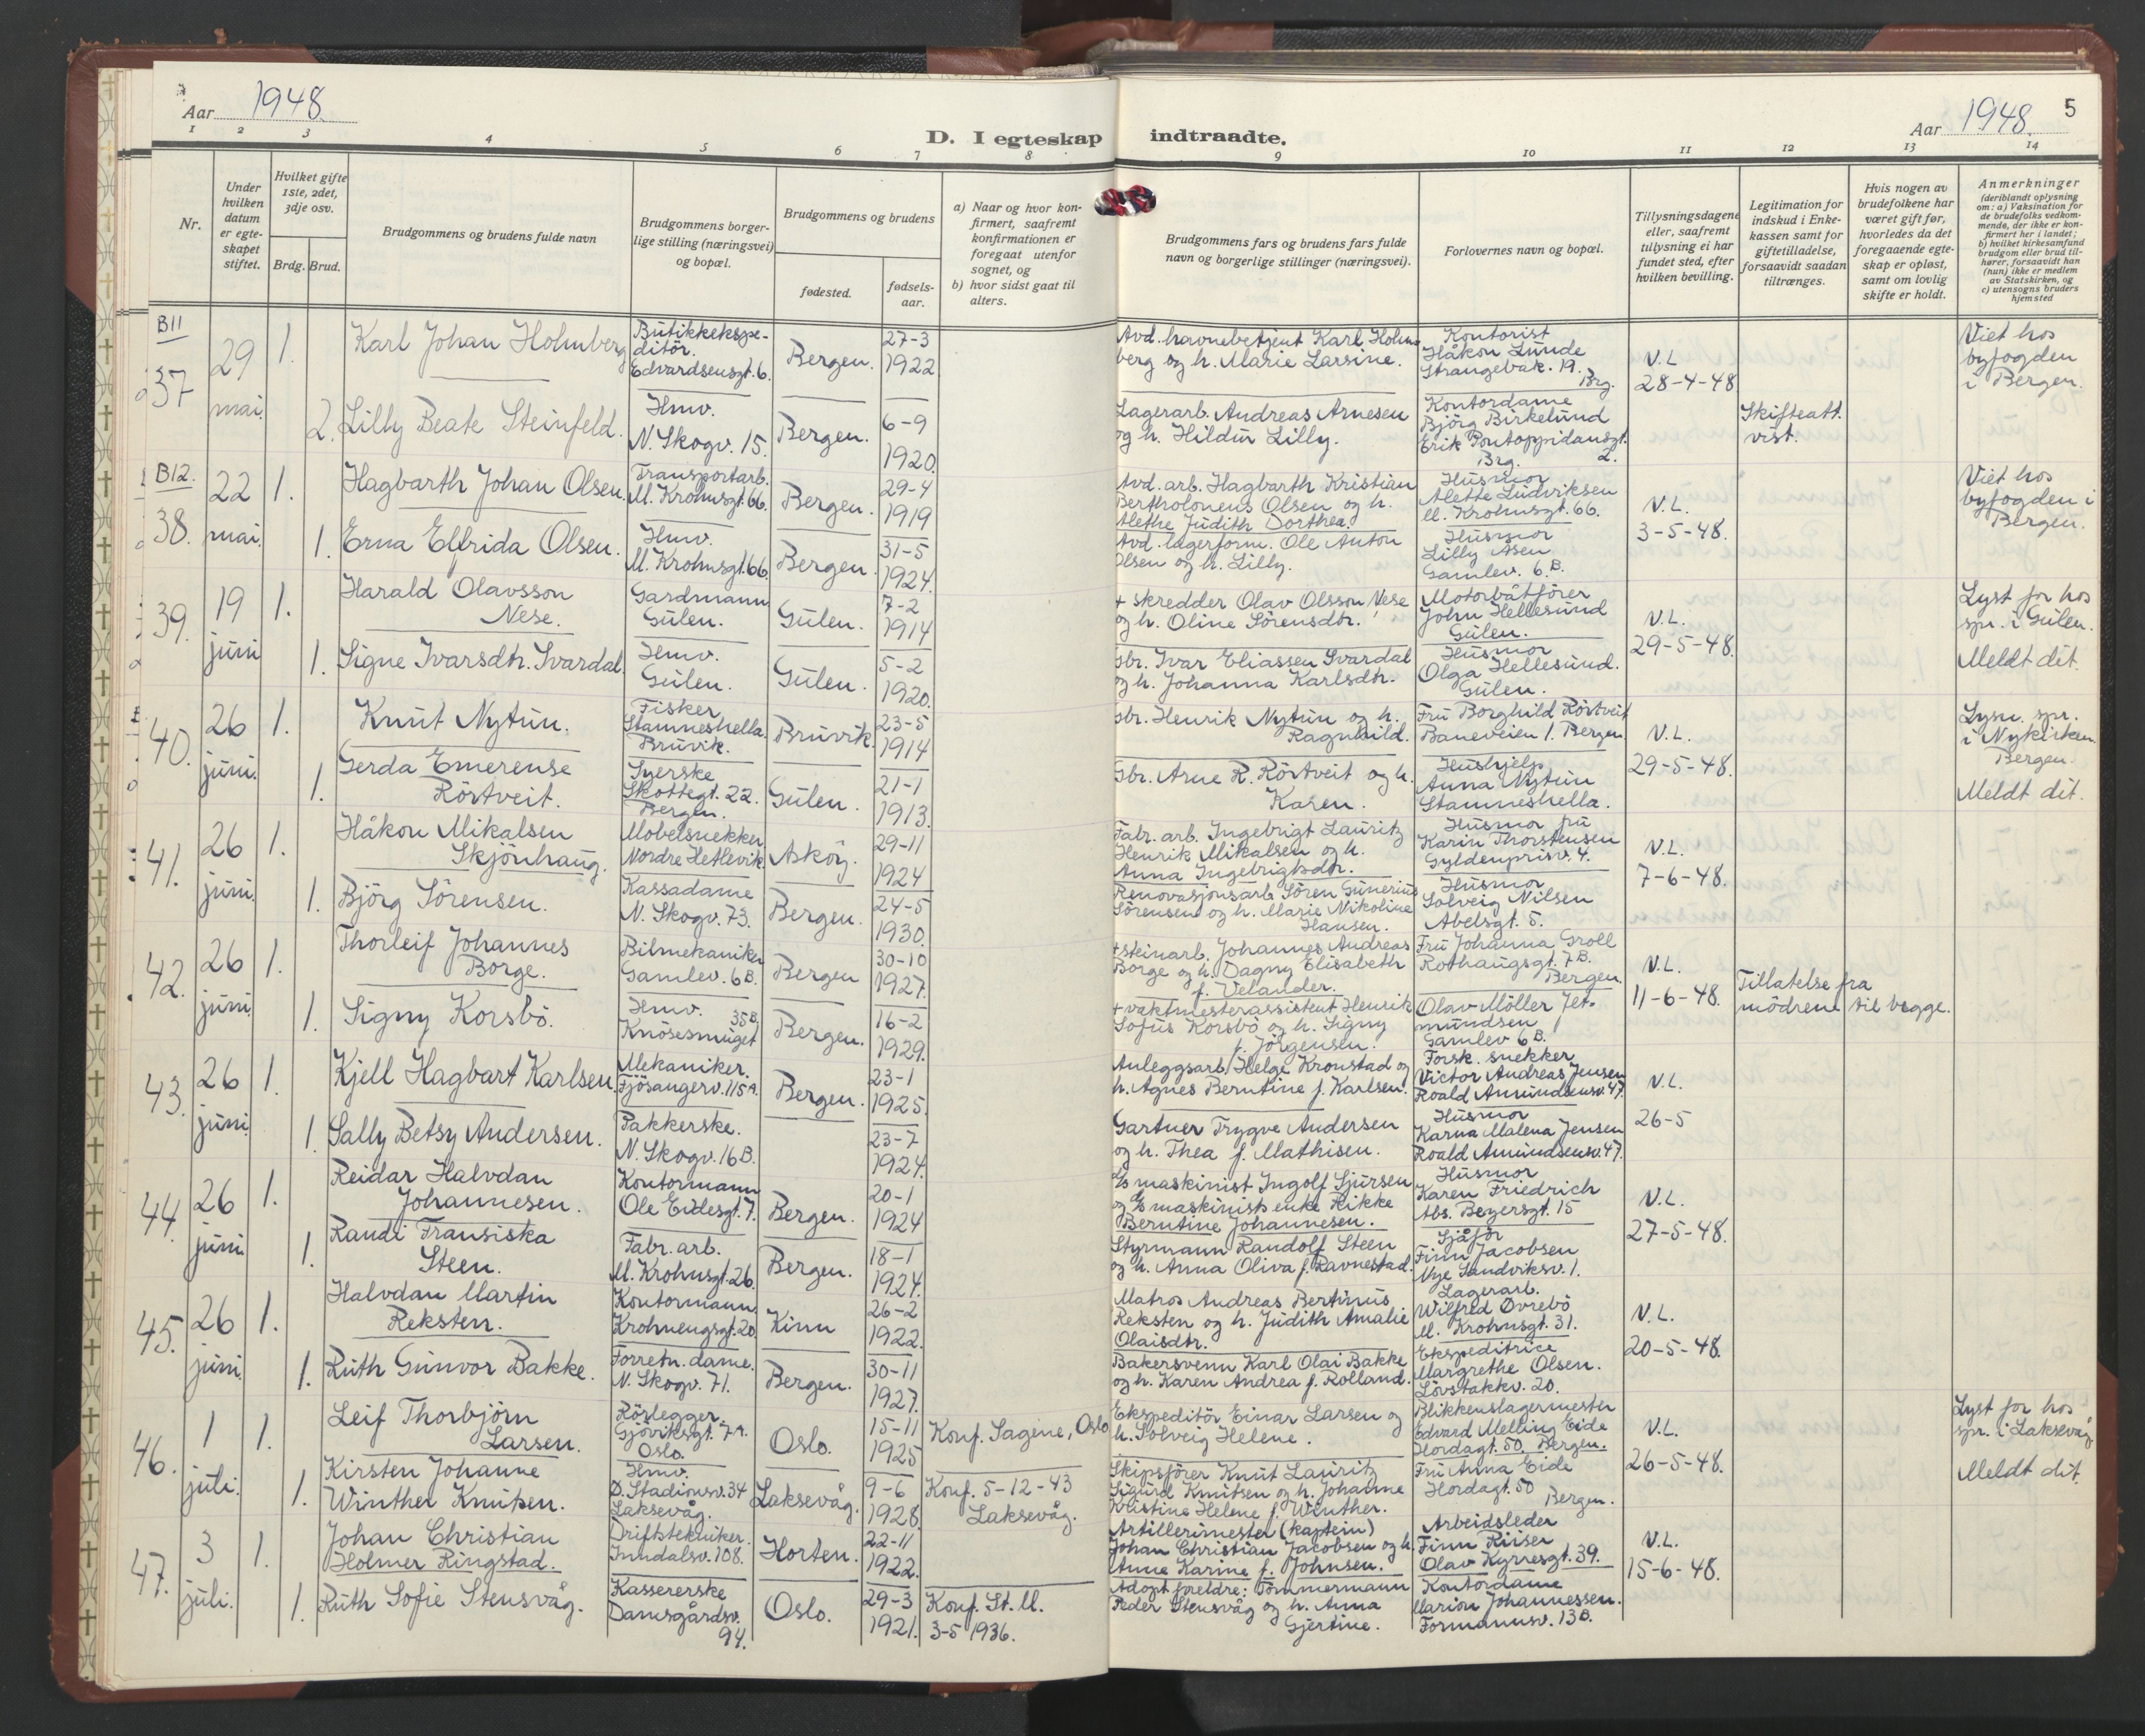 Aar 1948.
D. I egteskap indtraadte.
Aar 1948. 5
1 2 3 4 5 6 7 8 9 10 11 12 13 14
Nr.
Under hvilken datum er egte-skapet stiftet.
Hvilket gifte 1ste, 2det, 3dje osv.
Brdg. Brud.
Brudgommens og brudens fulde navn
Brudgommens borger-lige stilling (næringsvei) og bopæl.
Brudgommens og brudens
fødested.
fødsels-aar.
a) Naar og hvor kon-firmert, saafremt konfirmationen er foregaat utenfor sognet, og
b) hvor sidst gaat til alters.
Brudgommens fars og brudens fars fulde navn og borgerlige stillinger (næringsvei).
Forlovernes navn og bopæl.
Tillysningsdagene eller, saafremt tillysning ei har fundet sted, efter hvilken bevilling.
Legitimation for indskud i Enke-kassen samt for giftetilladelse, forsaavidt saadan tiltrænges.
Hvis nogen av brudefolkene har været gift før, hvorledes da det foregaaende egte-skap er opløst, samt om lovlig skifte er holdt.
Anmerkninger (deriblandt oplysning om: a) Vaksination for de brudefolks vedkom-mende, der ikke er kon-firmert her i landet; b) hvilket kirkesamfund brudgom eller brud til-hører, forsaavidt han (hun) ikke er medlem av Statskirken, og c) utensogns bruders hjemsted
B11
37
29 mai.
1. Karl Johan Holmberg
Butikkekspe-ditör. Edvardsensgt. 6.
Bergen.
27-3 1922
Avd. havnebetjent Karl Holm-berg og h. Marie Larsine.
Kontorist Håkon Lunde Strangebak. 19. Brg.
N.L 28-4-48
Viet hos byfogden i Bergen.
2. Lilly Beate Steinfeld.
Hmv. N. Skogv. 15.
Bergen.
6-9 1920.
Lagerarb. Andreas Arnesen og h. Hildur Lilly.
Kontordame Björg Birkelund Erik Pontoppidansgt. 2. Brg.
Skifteatt. vist.
B12.
38.
22 mai.
1. Hagbarth Johan Olsen.
Transportarb. M. Krohnsgt. 66.
Bergen.
29-4 1919
Avd. arb. Hagbarth Kristian Bertholoneus Olsen og h. Alethe Judith Dorthea.
Husmor Alette Ludviksen M. Krohnsgt. 66.
N.L. 3-5-48.
Viet hos byfogden i Bergen.
1. Erna Elfrida Olsen.
Hmv. M. Krohnsgt. 66.
Bergen.
31-5 1924.
Avd. lagerform. Ole Anton Olsen og h. Lilly.
Husmor Lilly Åsen Gamlev. 6.B.
39.
19 juni
1. Harald Olavsson Nese.
Gardmann Gulen.
Gulen.
7-2 1914
+ skredder Olav Olsson Nese og h. Oline Sörensdtr.
Motorbåtförer John Hellesund Gulen.
N.L. 29-5-48.
Lyst for hos spr. i Gulen. Meldt dit.
1. Signe Ivarsdtr. Svardal
Hmv. Gulen.
Gulen.
5-2 1920.
gbr. Ivar Eliassen Svardal og h. Johanna Karlsdtr.
Husmor Olga Hellesund. Gulen.
40.
26 juni.
1. Knut Nytun.
Fisker Stamneshella. Bruvik.
Bruvik.
23-5 1914
gbr. Henrik Nytun og h. Ragnhild.
Fru Borghild Rörtveit Baneveien 1. Bergen
N.L. 29-5-48.
Lysn. spr. i Nykirken Bergen. Meldt dit.
1. Gerda Emerense Rörtveit.
Syerske Skottegt. 22. Bergen.
Gulen.
21-1 1913.
Gbr. Arne R. Rörtveit og h. Karen.
Hushjelp Anna Nytun Stamneshella.
41.
26 juni.
1. Håkon Mikalsen Skjönhaug.
Möbelsnekker Nordre Hetlevik
Asköy.
29-11 1924
Fabr. arb. Ingebrigt Lauritz Henrik Mikalsen og h. Anna Ingebrigtsdtr.
Husmor fru Karin Thorstensen Gyldenprisv. 4.
N.L. 7-6-48.
1. Björg Sörensen.
Kassadame N. Skogv. 73.
Bergen.
24-5 1930.
Renovasjonsarb. Sören Gunerius Sörensen og h. Marie Nikoline Hansen.
Husmor Solveig Nilsen Abelsgt. 5.
42.
26 juni
1. Thorleif Johannes Borge.
Bilmekaniker Gamlev. 6B.
Bergen
30-10 1927.
+ steinarb. Johannes Andreas Borge og h. Dagny Elisabeth f. Velander.
Fru Johanna Groll Rothaugsgt. 7B. Bergen.
N.L. 11-6-48.
Tillatelse fra mödrene til begge.
1. Signy Korsbö.
Hmv. Knösesmuget 35B.
Bergen.
16-2 1929.
+ vaktmesterassistent Henrik Sofus Korsbö og h. Signy f. Jörgensen.
Olav Möller Jet-mundsen Gamlev 6B.
43.
26 juni
1. Kjell Hagbart Karlsen.
Mekaniker. Fjösangerv. 115A.
Bergen.
23-1 1925.
Anleggsarb. Helge Kronstad og h. Agnes Berntine f. Karlsen.
Forsk. snekker Victor Andreas Jensen Roald Amundsensv. 47.
N.L. 26-5
1. Sally Betsy Andersen.
Pakkerske. N. Skogv. 16B.
23-7 1924.
Gartner Trygve Andersen og h. Thea f. Mathisen.
Husmor Karna Malena Jensen Roald Amundsensv. 47.
44.
26 juni
1. Reidar Halvdan Johannesen.
Kontormann Ole Eidesgt. 7.
Bergen.
20-1 1924
d/s maskinist Ingolf Sjursen og d/s maskinist enke Rikke Berntine Johannesen.
Husmor Karen Friedrich Abs. Beyersgt. 15
N.L. 27-5-48.
1. Randi Fransiska Steen.
Fabr. arb. M. Krohnsgt. 26.
Bergen.
18-1 1924.
Styrmann Randolf Steen og h. Anna Oliva f. Ravnestad.
Sjåför Finn Jacobsen Nye Sandviksv. 1.
45.
26 juni.
1. Halvdan Martin Reksten.
Kontormann Krohnengsgt. 20.
Kinn
26-2 1922.
Matros Andreas Bertinus Reksten og h. Judith Amalie Olaisdtr.
Lagerarb. Wilfred Øvrebö M. Krohnsgt. 31.
N.L. 20-5-48.
1. Ruth Gunvor Bakke.
Forretn. dame. N. Skogv. 71.
Bergen.
30-11 1927.
Bakersvenn Karl Olai Bakke og h. Karen Andrea f. Rolland.
Ekspeditrice Margrethe Olsen. Lövstakkv. 20.
46.
1 juli.
1. Leif Thorbjörn Larsen.
Rörlegger. Gjöviksgt. 7A. Oslo.
Oslo.
15-11 1925
Konf. Sagene, Oslo
Ekspeditör Einar Larsen og h. Solveig Helene.
Blikkenslagermester Edvard Melling Eide Hordagt. 50, Bergen.
N.L. 26-5-48.
Lyst for hos spr. i Laksevåg. Meldt dit.
1. Kirsten Johanne Winther Knutsen.
Hmv. D. Stadionsv. 34 Laksevåg.
Laksevåg.
9-6 1928.
Konf. 5-12-43 Laksevåg.
Skipsförer Knut Lauritz Sigurd Knutsen og h. Johanne Kristine Helene f. Winther.
Fru Anna Eide Hordagt. 50 Bergen.
47.
3 juli.
1. Johan Christian Holmer Ringstad.
Driftstekniker. Inndalsv. 108.
Horten.
22-11 1922.
Artillerimester (kaptein) Johan Christian Jacobsen og h. Anne Karine f. Johnsen.
Arbeidsleder Finn Riiser Olav Kyrresgt. 39.
N.L. 15-6-48.
1. Ruth Sofie Stensvåg.
Kassererske Damsgårdsv. 94.
Oslo.
29-3 1921.
Konf. St. M. 3-5 1936.
Adopt. foreldre: Tömmermann Peder Stensvåg og h. Anna Gjertine.
Kontordame Marion Johannessen. Formannsv. 13B.